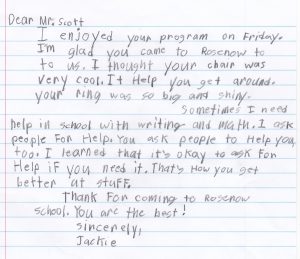 Dear Mr. Scott
I enjoyed your program on Friday.
I'm glad you came to Rosenow to
to us. I thought your chair was
very cool. It Help you get around.
your ring was so big and shiny.
Sometimes I need
help in school with writing and math. I ask
people For Help. You ask people to Help you
too. I learned that it's okay to ask For
Help if you need it. That's How you get
better at stuff.
Thank For coming to Rosenow
school. You are the best!
Sincerely,
Jackie